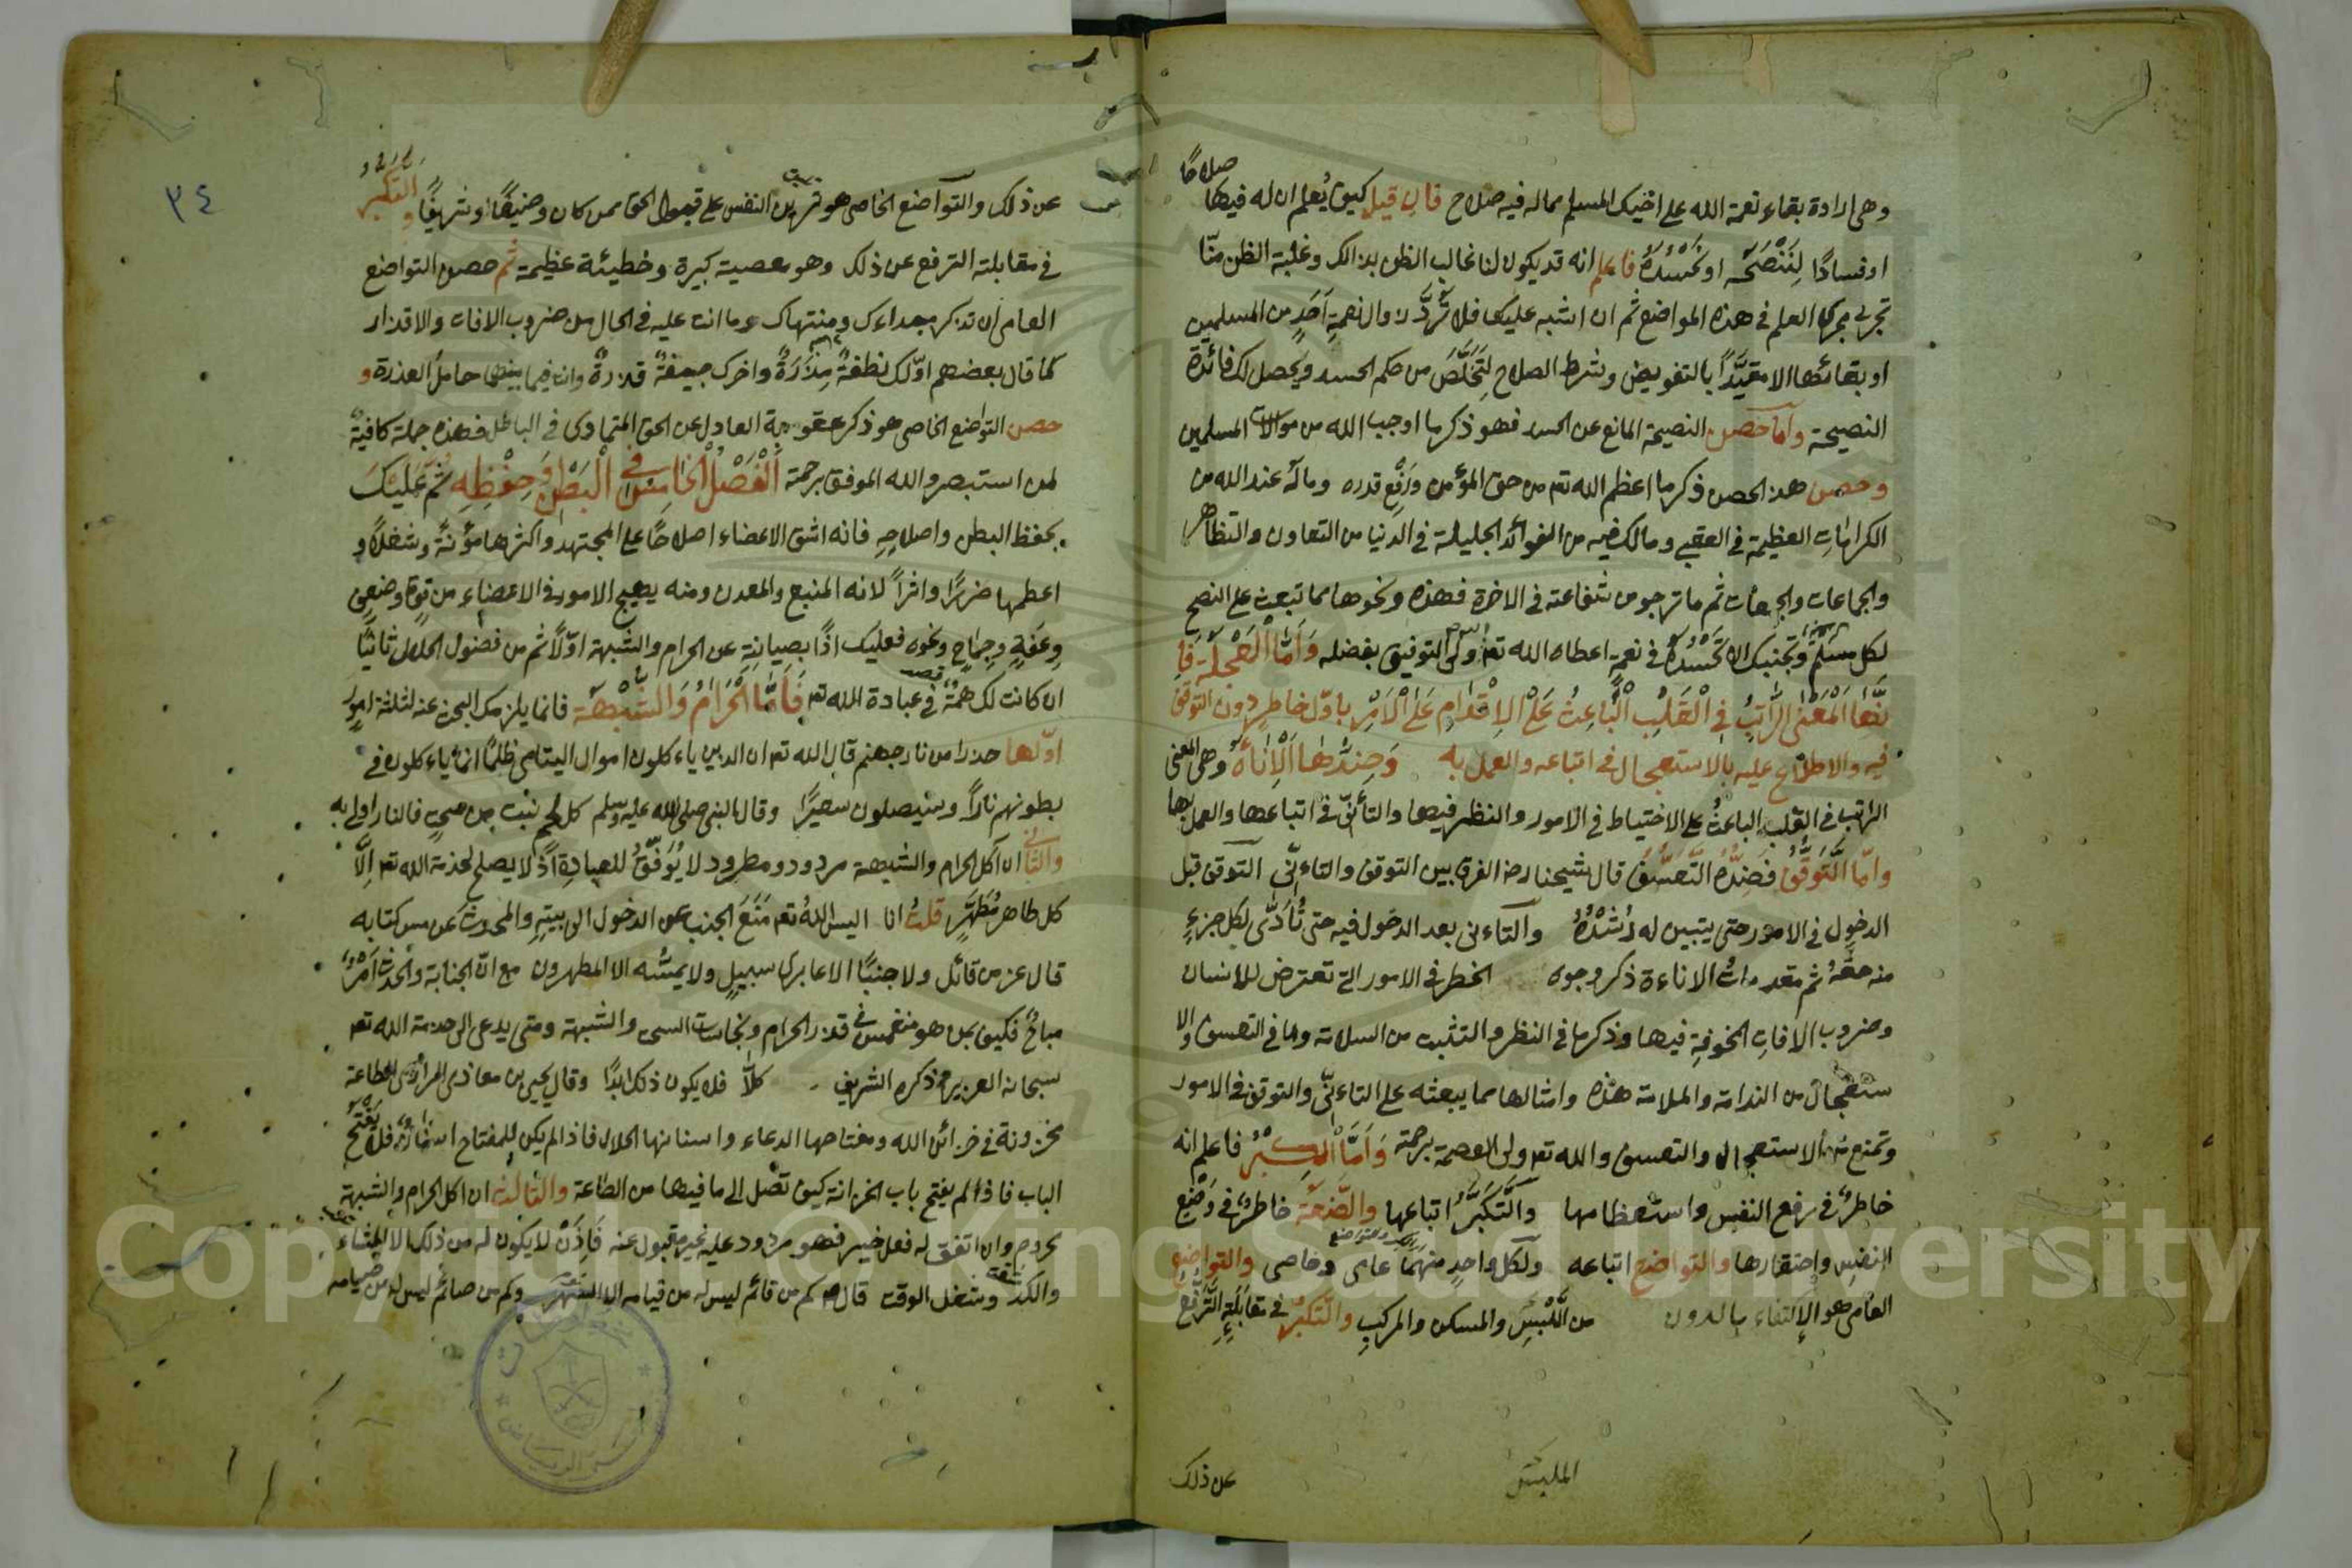 صلاحًا
وهى ارادة بقاء نعمة الله على اخيك المسلم مماله فيه صلاح فان قيل كيف يُعلم ان له فيها
او فسادًا لِنَنْصَحَهُ او نَحْسُدَهُ فاعلم انه قد يكون لنا غالب الظن بذالك وغلبة الظن منّا
تجرى مجرى العلم فى هذه المواضع ثم ان اشتبه عليك فلا تُرِدَّن زوال نعمةِ اَحَدٍ من المسلمين
او بقائها الا مقيَّدًا بالتفويض وشرط الصلاح لِتَخَلَّصَ من حكم الحسد ويحصل لك فائدة
النصيحة وامّا حصن النصيحة المانع عن الحسد فهو ذكر ما اوجب الله من موالات المسلمين
وحصن هذ الحصن ذكر ما اعظم الله تعه من حق المؤمن ورَفَّع قدره وماله عند الله من
الكرامات العظيمة فى العقبى ومالك فيه من الفوائد الجليلة فى الدنيا من التعاون والتظاهر
والجماعات والجمعات ثم ما ترجو من شفاعته فى الاخرة فهذه ونحوها مما تبعث على النصح
لكل مسلم وتجنبك الا تَحْسُدَهُ فى نعمةٍ اعطاه الله تعه والله ولى التوفيق بفضله وَاَمَّا الْعَجَلَةُ فَاِ
نَّهَا الْمَعْنَى الرَّاتِبُ فِى الْقَلْبِ الْبَاعِثُ عَلَى الْاِقْدَامِ عَلَى الْاَمْرِ باوّل خاطرٍ دون التوقف
فيه والاطلاع عليه بالاستعجال فى اتباعه والعمل به وَضِدُّهَا اَلْاِنَاةُ وهى المعنى
الراتب فى القلب الباعثُ على الاختياط فى الامور والنظر فيها والتأنّى فى اتباعها والعمل بها
وامّا التَّوَقُّفُ فَضِدُّهُ التَّعَسُّفُ قال شيخنا رح الفرق بين التوقف والتاءنّى التوقف قبل
الدخول فى الامور حتى يتبين له رُشْدُهُ والتاءنى بعد الدخول فيه حتى تُؤَدَّى لكل جزءٍ
منه حقَّهُ ثم مقدماتُ الاناءة ذكر وجوه الخطر فى الامور التى تعترض للانسان
وضروب الافات المخوفةِ فيها وذكر ما فى النظر والتثبت من السلامة وما فى التعسف والا
ستعجال من الندامة والملامة هذه وامثالها مما يبعثه على التاءنّى والتوقف فى الامور
وتمنع من الاستعجال والتعسف والله تعه ولى العصمة برحمته وَاَمَّا الْكِبْرُ فاعلم انه
خاطرٌ فى رفع النفس واستعظامها والتَّكَبُّرُ اتباعها والضَّعَةُ خاطرٌ فى وَضْعِ
النفس واحتقارها والتواضع اتباعه ولكل واحدٍ منهما عامى وخاصى والتواضع
العامى هو الاكتفاء بالدون من المَلْبَسِ والمسكن والمركب والتكبّر فى مقابلة التَّرَفُّعِ
الملبس
عن ذلك
٣٤
عن ذلك والتواضع الخاصى هو تمرين النفس على قبول الحق ممن كان وضيعًا او شريفًا والتَّكَبُّرُ
فى مقابلته الترفع عن ذلك وهو معصية كبيرة وخطيئة عظيمة ثم حصن التواضع
العامى ان تذكر مبداءك ومنتهاك وما انت عليه فى الحال من ضروب الافات والاقذار
كما قال بعضهم اوّلك نطفةٌ مَذِرَةٌ واخرك جيفةٌ قذرةٌ وانت فيما بينهما حامل العذرة و
حصن التواضع الخاصى هو ذكر عقوبة العادل عن الحق المتمادى فى الباطل فهذه جملة كافيةٌ
لمن استبصر والله الموفق برحمته اَلْفَصْلُ الْخَامِسُ فِى الْبَطْنِ وَحِفْظِهِ ثُمَّ عَلَيْكَ
بحفظ البطن واصلاحِهِ فانه اشق الاعضاء اصلاحًا على المجتهد واكثرها مَؤُنَةً وشغلًا و
اعظمها ضررًا واثرًا لانه المنبع والمعدن ومنه يهيج الامور فى الاعضاء من قوةٍ وضعفٍ
وعفةٍ وجماحٍ ونحوه فعليك اذًا بصيانتِهِ عن الحرام والشبهة اوّلًا ثم من فضول الحلال ثانيًا
ان كانت لك همةٌ فى عبادة الله تعه فَاَمَّا الْحَرَامُ وَالشُّبْهَةُ فانما يلزمك البحث عنه لثلثة امورٍ
اوّلها حذرا من نار جهنم قال الله تعه ان الذين ياءكلون اموال اليتامى ظلمًا انما ياءكلون فى
بطونهم نارًا وسيصلون سعيرًا وقال النبى صلى الله عليه وسلم كل لحم نبت من سحتٍ فالنار اولى به
والثانى ان آكل الحرام والشبهة مردود ومطرود لا يُوَفَّقُ للعبادة اذ لا يصلح لخدمة الله تعه اِلَّا
كل طاهر مُطَهَّرٍ قلتُ انا اليس اللهُ تعه مَنَعَ الجنب عن الدخول الى بيتِهِ والمحدث عن مس كتابه
قال عز من قائل ولا جنبًا الا عابرى سبيلٍ ولا يمسُّه الا المطهرون مع انّ الجنابة والحدث اَمْرٌ
مباحٌ فكيف بمن هو منغمس فى قذر الحرام ونجاست السحت والشبهة ومتى يدعى الى خدمة الله تعه
سبحانه العزيز وذكره الشريف كلّا فلا يكون ذلك ابدًا وقال يحيى بن معاذى الرازى الطاعة
مخزونة فى خزائن الله ومفتاحها الدعاء واسنانها الحلال فاذا لم يكن للمفتاح اسنانٌ فلا يَفْتَحُ
الباب فاذا لم يفتح باب الخزانة كيف تصل الى ما فيها من الطاعة والثالث ان آكل الحرام والشبهة
محروم وان اتفق له فعل خير فهو مردود عليه غير مقبول عنه فَاِذَنْ لا يكون له من ذلك الا العناء
والكدّ وشغل الوقت قال عم كم من قائم ليس له من قيامه الا السَّهَر وكم من صائم ليس له من صيامه